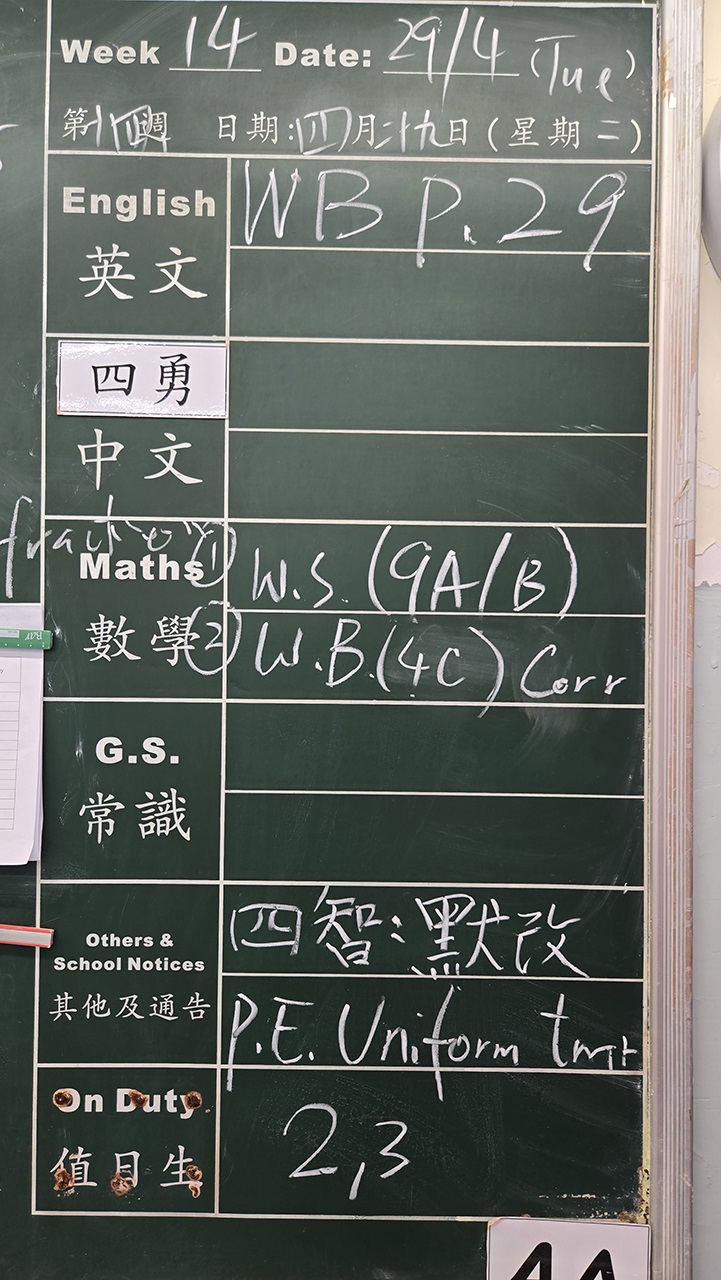 Week 14 Date: 29/4 (Tue)
第十四週 日期:四月二十九日(星期二)
English WB P.29
英文
四勇
中文
Maths ① W.S. (9A/B)
數學 ② W.B.(4C) Corr
G.S.
常識
Others & 四智:默改
School Notices
其他及通告 P.E. Uniform tmr
On Duty 2,3
值日生